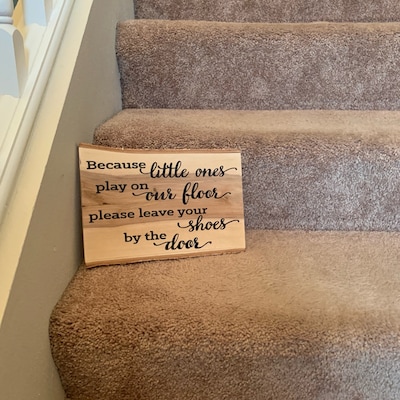 Because little ones
play on our floor
please leave your
shoes
by the door